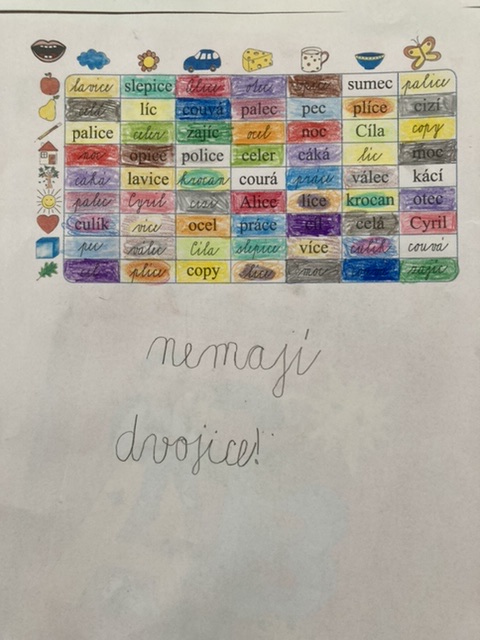 lavice slepice Alice otec opice sumec palice
celá líc couvá palec pec plíce cizí
palice celer zajíc ocel noc Cíla copy
noc opice police celer cáká líc moc
cáká lavice krocan courá práce válec kácí
palec Cyril cizí Alice líce krocan otec
culík více ocel práce cíl celá Cyril
pec válec Cíla slepice více culík couvá
cíl plíce copy líce moc zajíc
nemají
dvojice!